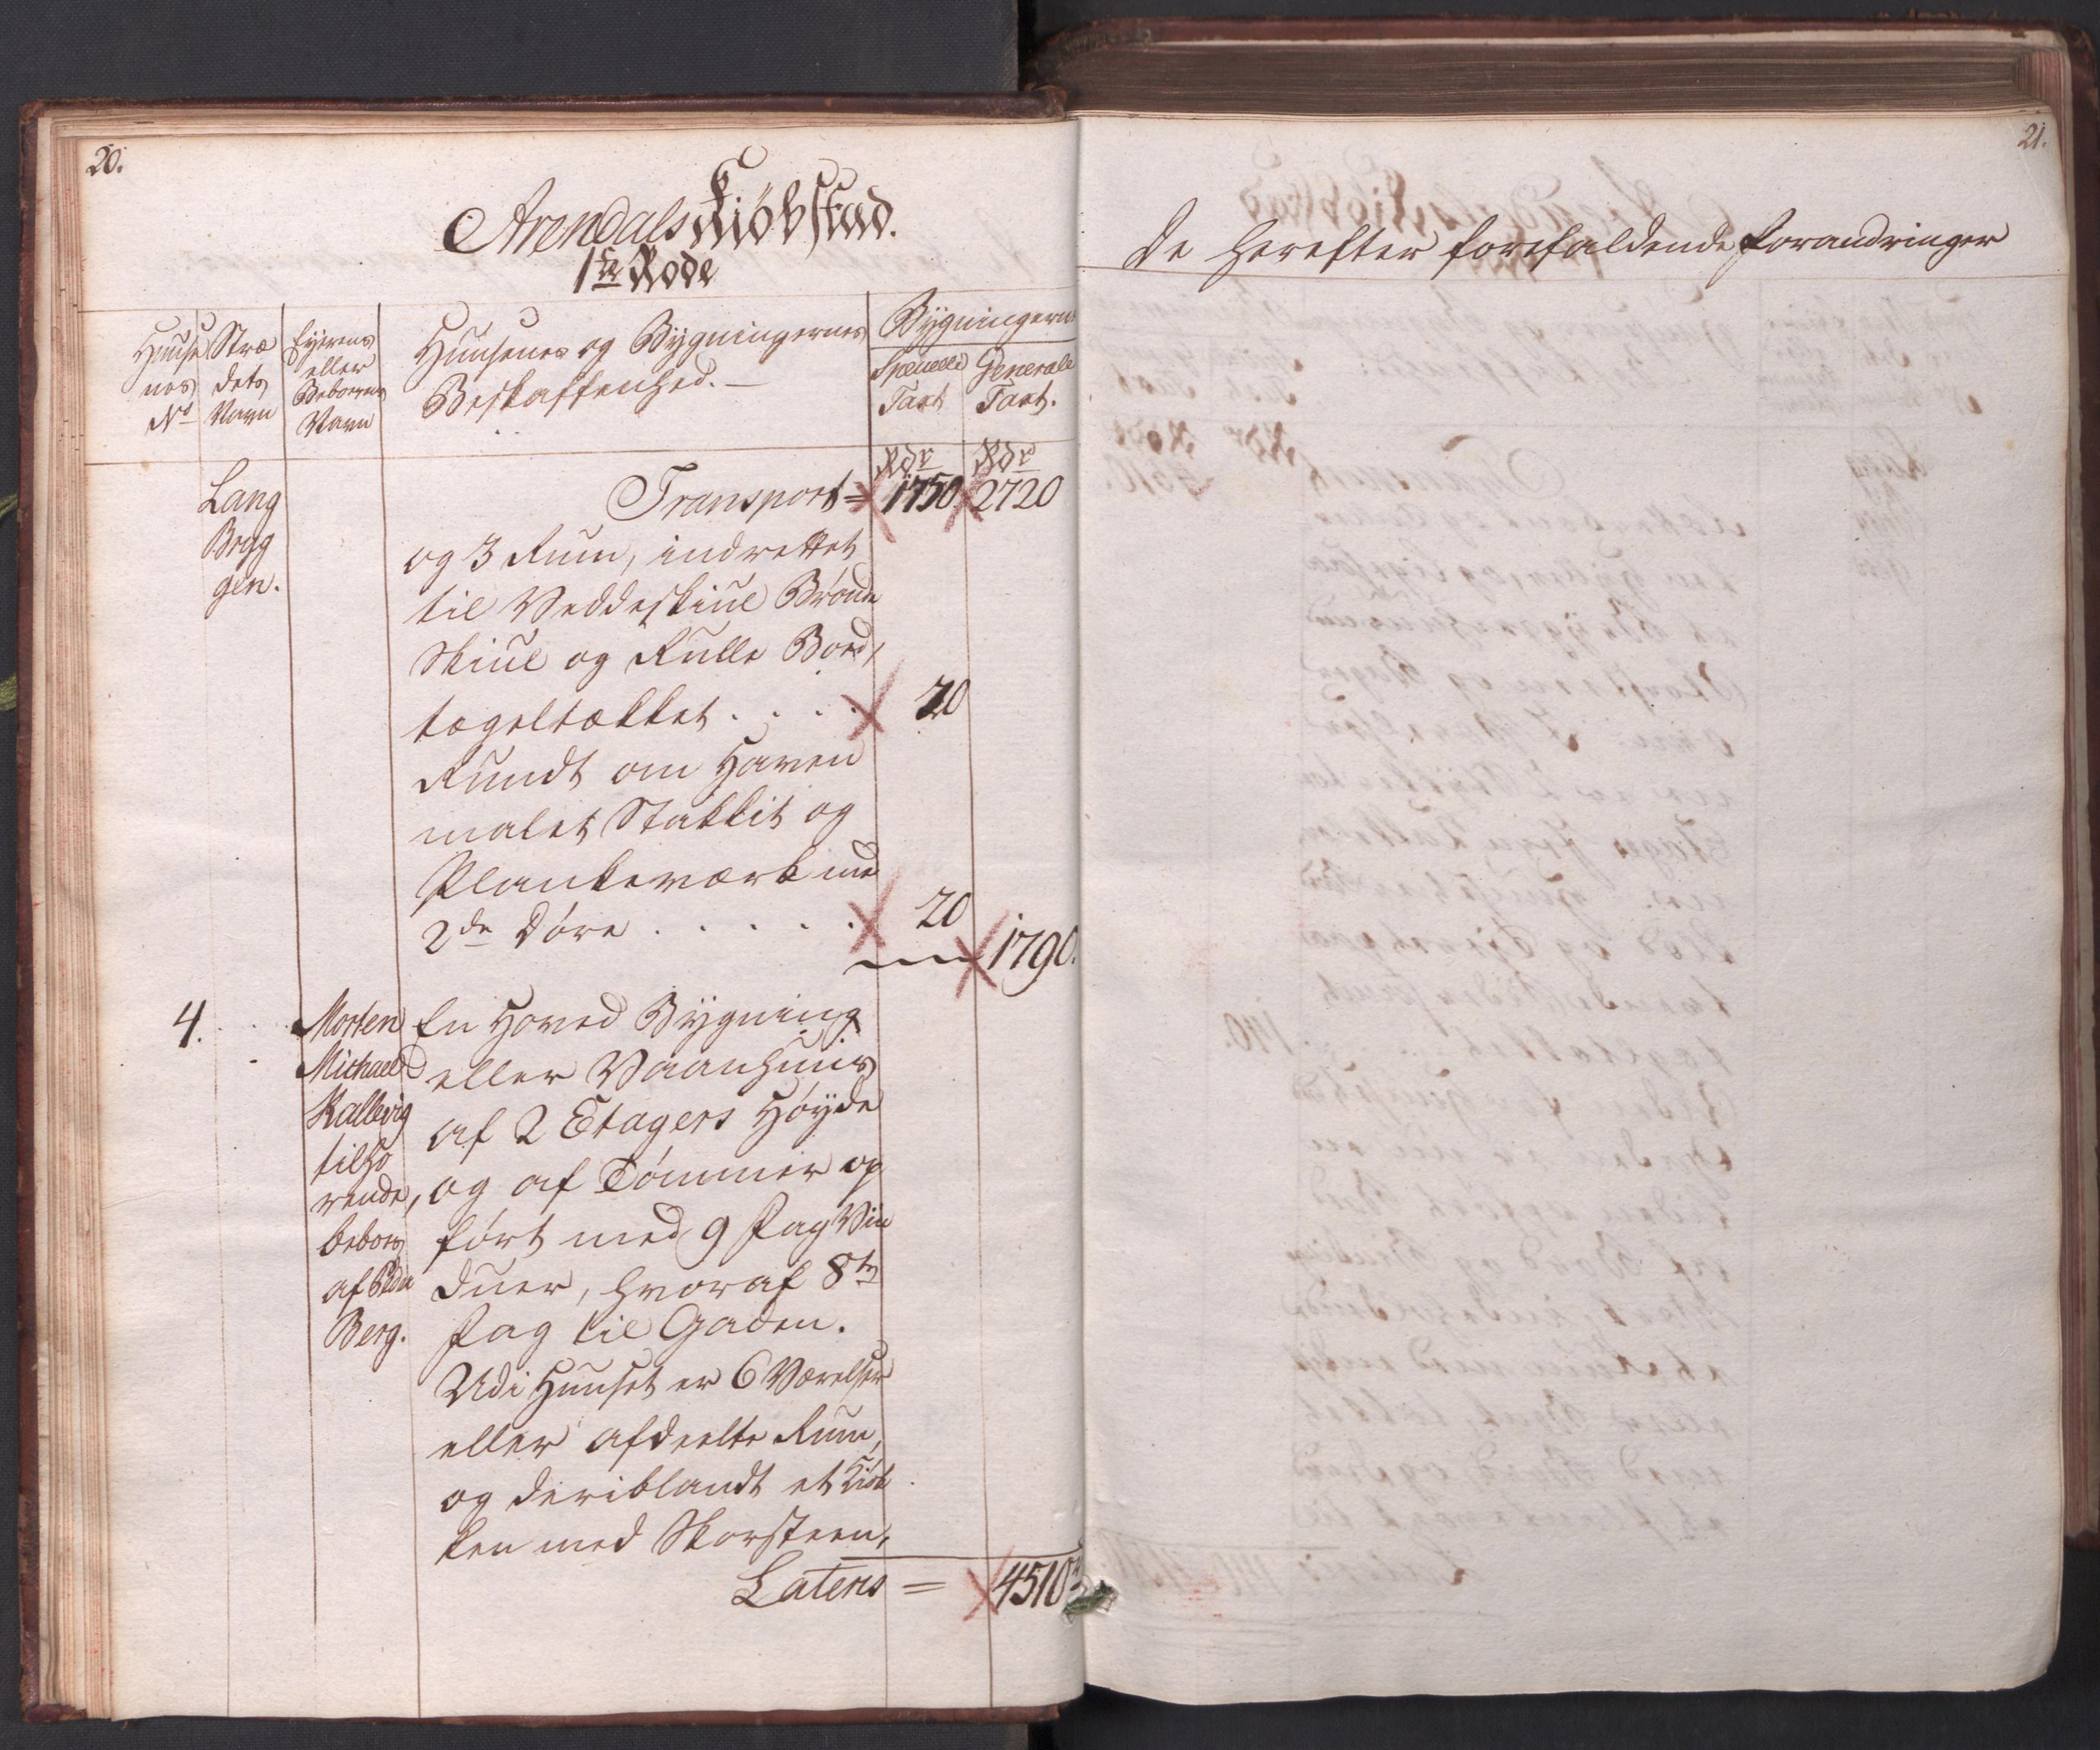 20.
Arendals Kiøbstad.
1ste Rode
Huuse
nes
No
Stræ
dets
Navn
Eyerens
eller
Beboerens
Navn
Huusenes og Bygningernes
Beskaffenhed. —
Bygningern
Specielle
Taxt
Generale
Taxt.
Rdr
Rdr
Lang
Bryg
gen.
Transport = 1750 2720
og 3 Rum, indrettet
til Veddeskiul Brønde
Skiul og Rulle Bord,
tegeltækket . . . . 20
Rundt om Haven
malet Stakkit og
Plankeværk med
2de Døre . . . . . 20
1790.
4.
Morten
Michael
Kallevig
tilhø
rende,
beboes
af
Berg.
En Hoved Bygning
eller Vaanhuus
af 2 Etagers Høyde
og af Tømmer op
ført med 9 Fag Vin
duer, hvoraf 8te
Fag til Gaden.
Udi Huuset er 6 Værelser
eller afdeelte Rum,
og deriblandt et Kiøk
ken med Skorsteen,
Lateris = 4510
21.
De herefter forefaldende Forandringer